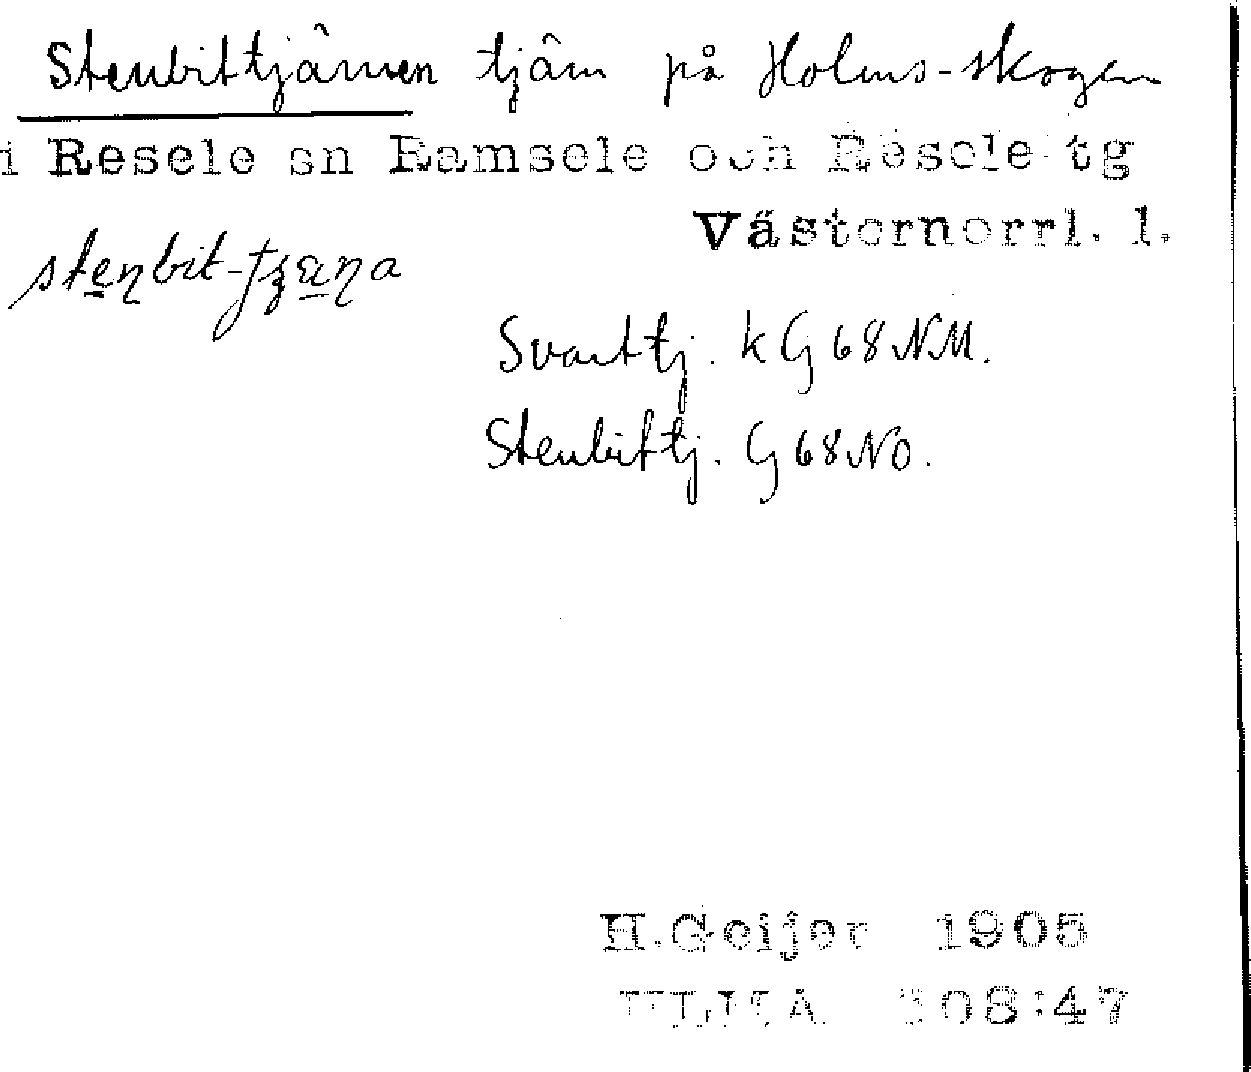 Stenbittjärnen tjärn på Holms-skogen
i Resele sn Ramsele och Resele tg
Västernorrl. l.
Svarttj. k G 68 NM.
Stenbittj. G 68 NO.
H.Geijer 1905
ULMA 308:47